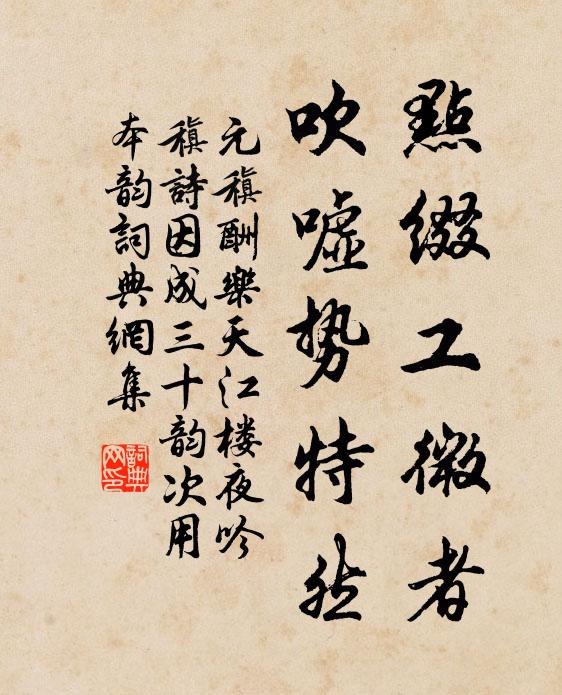 點缀工微者
吹嘘势特然
元稹酬樂天江楼夜吟
稹詩因成三十韵次用
本韵詞典網集
詞典网印